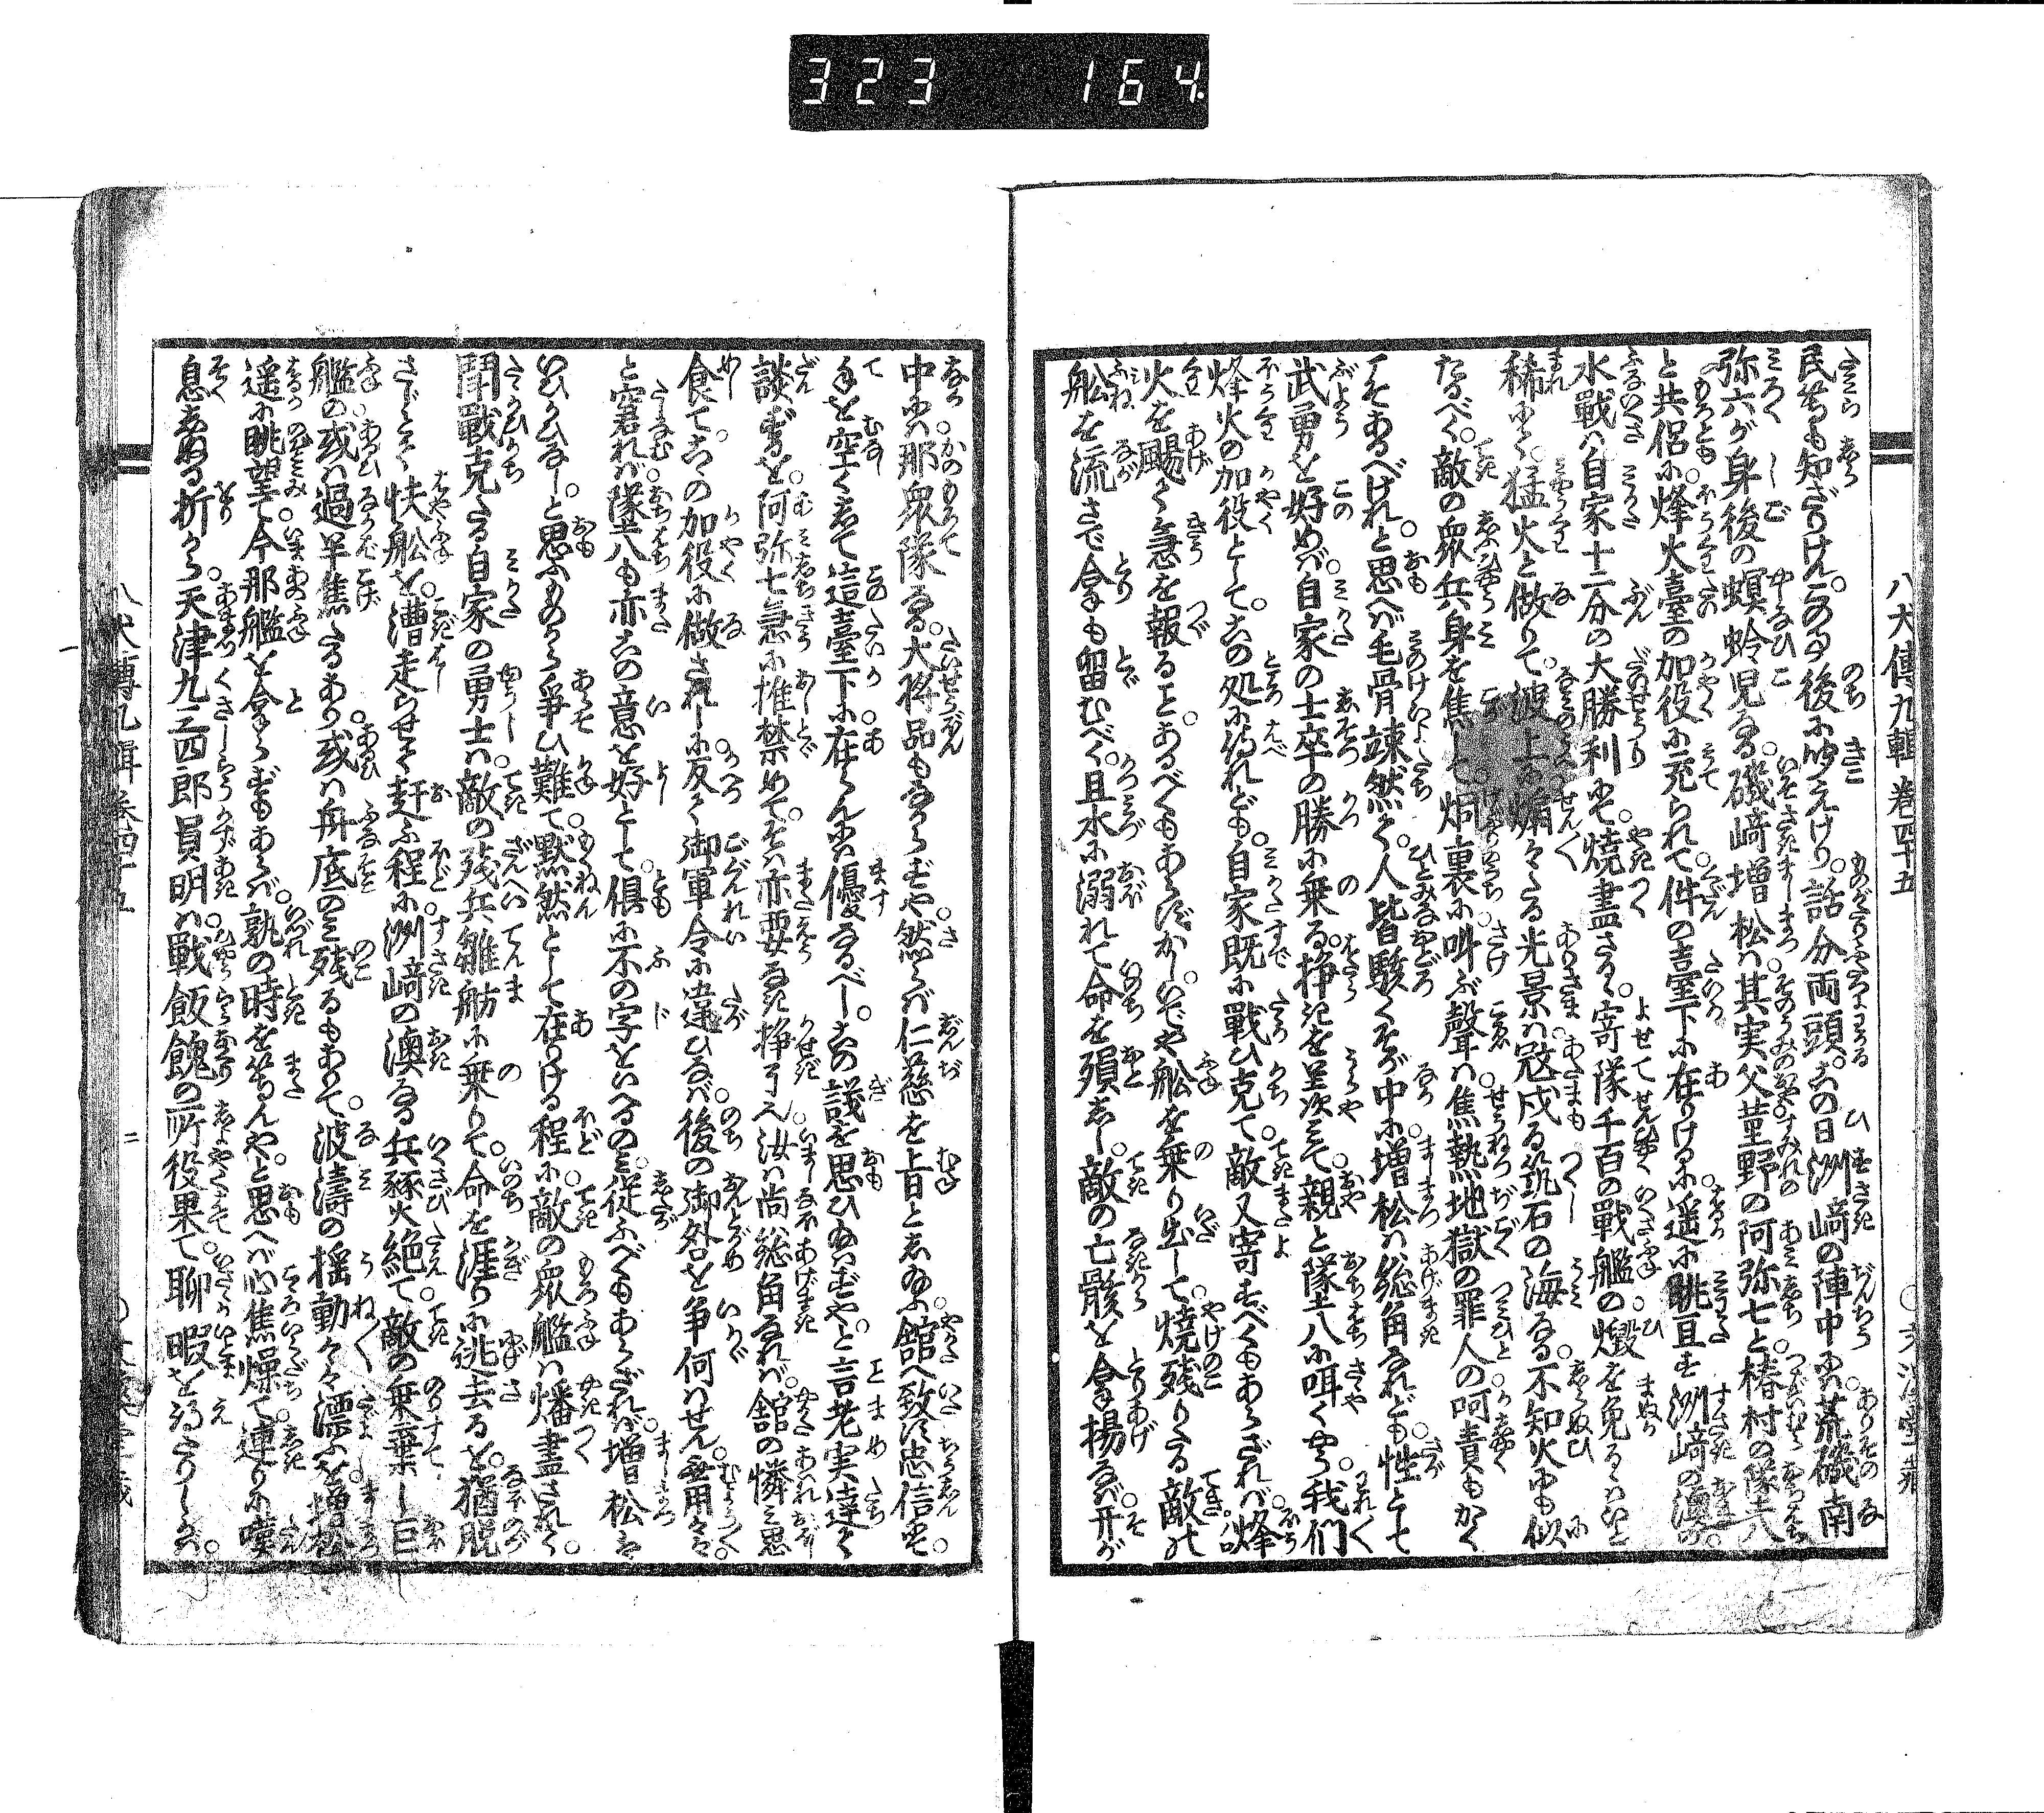 323 164
八犬傳九輯巻四十五
民等も知ざりけん。この後に聞えけり。話分両頭。この日洲﨑の陣中には。荒磯南
弥六が身後の螟蛉児なる。磯﨑増松は其実父菫野の阿弥七と。椿村の墜八
と共侶に。烽火臺の加役に充られて。件の臺下に在りけるに。遥に眺亘す洲﨑の澳の。
水戰は自家十二分の大勝利にて。焼盡さるゝ寄隊千百の戰艦の。燬を免るゝはいと
稀にて。猛火と做りて。波上に煽々たる光景は。冦戍る筑石の海なる。不知火にも似
たるべく。敵の衆兵身を焦して。烔裏に叫ぶ聲は。焦熱地獄の罪人の呵責もかく
こそあるべけれと思へば毛骨竦然て。人皆駭くそが中に。増松は總角なれども。性として
武勇を好めば。自家の士卒の勝に乗る。挊を呈次みて。親と墜八に咡くやう。我們
烽火の加役として。この処に侍れども。自家既に戰ひ克て。敵又寄すべくもあらざれば。烽
火を颺て急を報ることあるべくもあらずかし。いでや舩を乗り出して。焼残りたる敵の
舩を流さで拿も留むべく。且水に溺れて命を殞しゝ。敵の亡骸を拿揚なば。开が
中には那衆隊なる。大将品もなからずや。然らば仁慈を旨としぬふ。舘へ致す忠信にて。
手を空くして這臺下に在らんには優るべし。この議を思ひぬはずやと言老実達て
談ずるを。阿弥七急に推禁めて。そは亦要なき挊了ん。汝は尚總角なれば。舘の憐み思
食て。この加役に做されしに。反て御軍令に違ひなば。後の御咎を争何はせん。無用々々
と窘れば。墜八も亦この意を好として。倶に不の字をいへるのみ。從ふべくもあらざれば。増松は
いひかひなしと思ふものから。争ひ難て。黙然として在りける程に。敵の衆艦は燔盡されて。
鬪戰克たる自家の勇士は。敵の残兵雑舫に乗りて。命を涯りに逃去るを。猶脱
さじとて。快舩を。漕走らせて趕ふ程に。洲﨑の澳なる兵燹火絶て。敵の乗棄し巨
艦の或は過半焦たるあり。或は舟底のみ残るもありて。波濤の揺動々々漂ふを。増松
遥に眺望て。今那艦を拿らずもあらば。孰の時を等んや。と思へば心焦燥て。連りに嘆
息しぬる折から。天津九三四郎員明は。戰飯餽の所役果て。聊暇を得たりしかば。
八犬傳九輯巻四十五
二